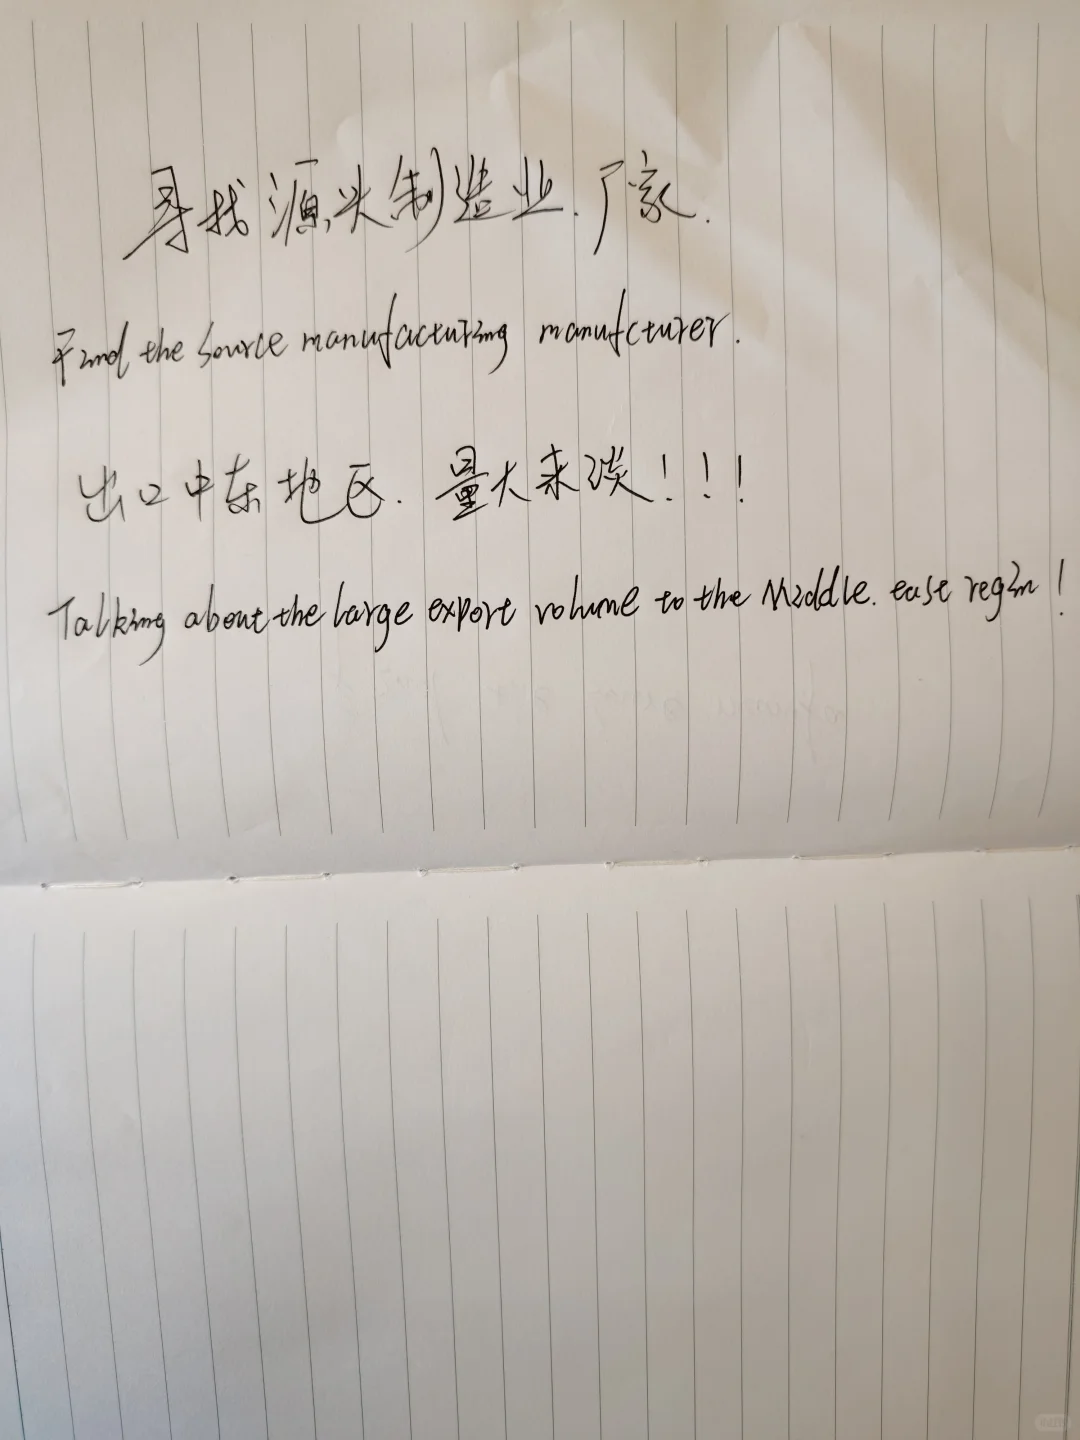 寻找源头制造业.厂家.
Find the source manufacturing manufcturer.
出口中东地区. 量大来谈!!!
Talking about the large export volume to the Middle. east regin!